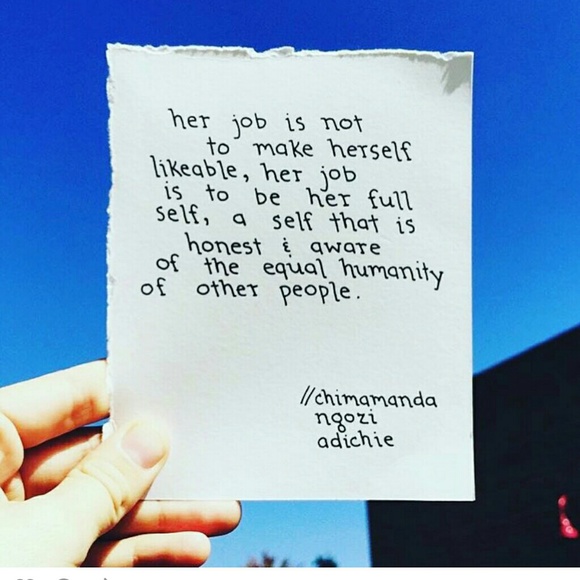 her job is not
to make herself
likeable, her job
is to be her full
self, a self that is
honest & aware
of the equal humanity
of other people.
//chimamanda
ngozi
adichie